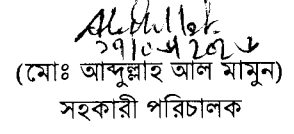 (মোঃ আব্দুল্লাহ আল মামুন)
সহকারী পরিচালক